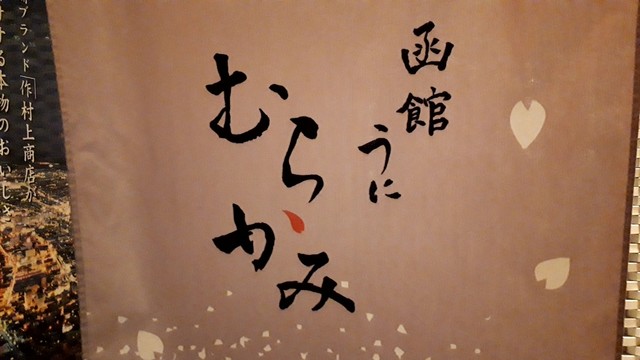 函館
うに
むらかみ
ブランド「作村上商店が
ける本物のおいしさ